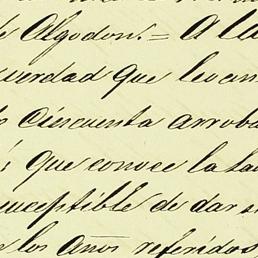 e Algodon. = A la
verdad que levan
cincuenta arroba
que conoce la ha
suceptible de dar s
los años referidos